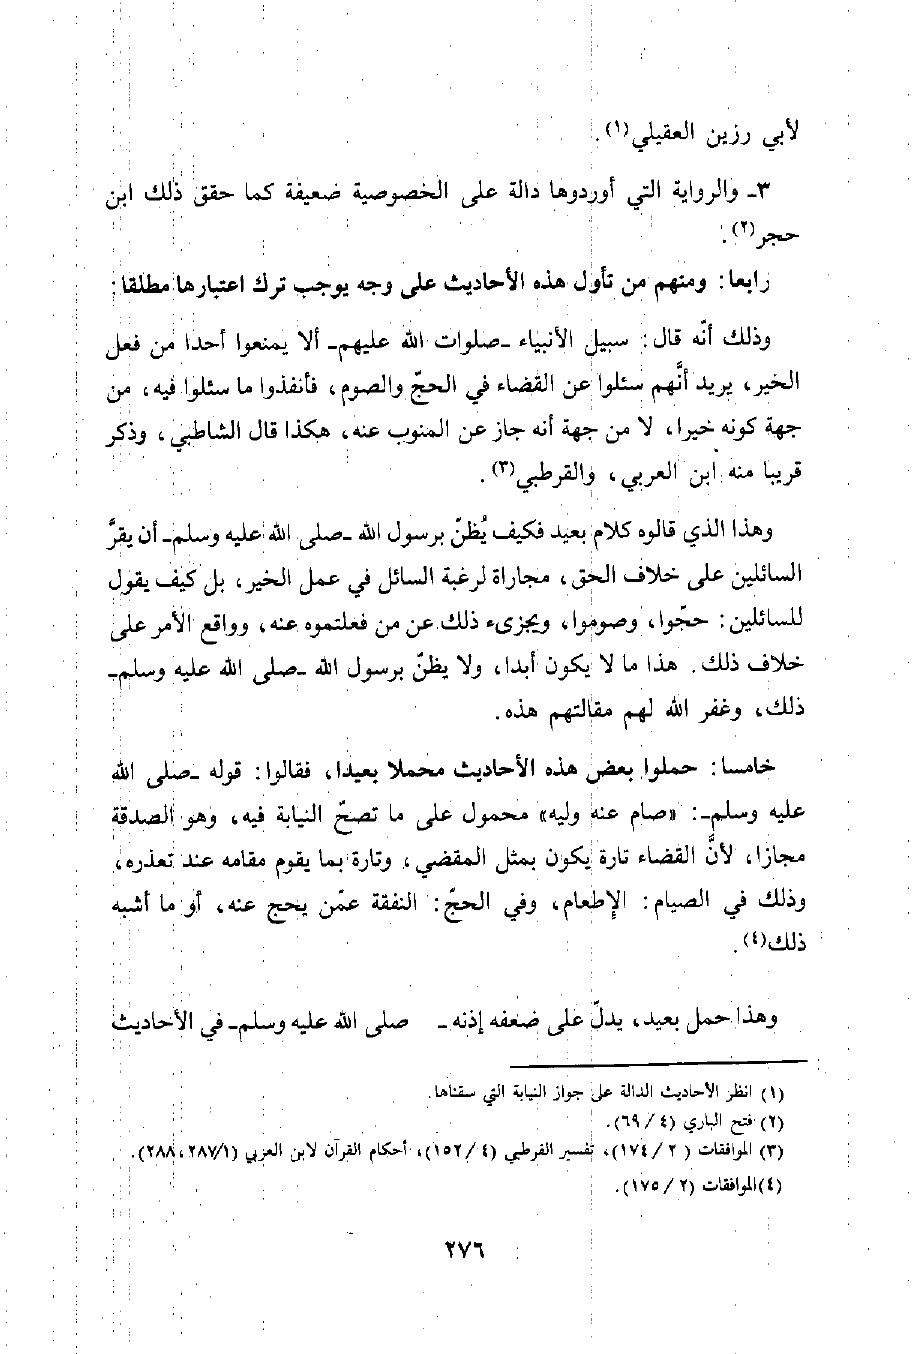 لأبي رزين العقيلي(١).
٣ـ والرواية التي أوردوها دالة على الخصوصية ضعيفة كما حقق ذلك ابن
حجر(٢).
رابعا: ومنهم من تأول هذه الأحاديث على وجه يوجب ترك اعتبارها مطلقا:
وذلك أنّه قال: سبيل الأنبياء ـ صلوات الله عليهم ـ ألا يمنعوا أحدا من فعل
الخير، يريد أنَّهم سئلوا عن القضاء في الحجّ والصوم، فأنفذوا ما سئلوا فيه، من
جهة كونه خيرا، لا من جهة أنه جاز عن المنوب عنه، هكذا قال الشاطبي، وذكر
قريبا منه ابن العربي، والقرطبي(٣).
وهذا الذي قالوه كلام بعيد فكيف يُظنّ برسول الله ـ صلى الله عليه وسلم ـ أن يقرَّ
السائلين على خلاف الحق، مجاراة لرغبة السائل في عمل الخير، بل كيف يقول
للسائلين: حجّوا، وصوموا، ويجزىء ذلك عن من فعلتموه عنه، وواقع الأمر على
خلاف ذلك. هذا ما لا يكون أبدا، ولا يظنّ برسول الله ـ صلى الله عليه وسلم ـ
ذلك، وغفر الله لهم مقالتهم هذه.
خامسا: حملوا بعض هذه الأحاديث محملا بعيدا، فقالوا: قوله ـ صلى الله
عليه وسلم ـ: «صام عنه وليه» محمول على ما تصحّ النيابة فيه، وهو الصدقة
مجازا، لأنَّ القضاء تارة يكون بمثل المقضي، وتارة بما يقوم مقامه عند تعذره،
وذلك في الصيام: الإطعام، وفي الحجّ: النفقة عمّن يحج عنه، أو ما أشبه
ذلك(٤).
وهذا حمل بعيد، يدلّ على ضعفه إذنه ـ صلى الله عليه وسلم ـ في الأحاديث
(١) انظر الأحاديث الدالة على جواز النيابة التي سقناها.
(٢) فتح الباري (٤/ ٦٩).
(٣) الموافقات (٢/ ١٧٤)، تفسير القرطبي (٤/ ١٥٢)، أحكام القرآن لابن العربي (٢٨٧/١، ٢٨٨).
(٤) الموافقات (٢/ ١٧٥).
٢٧٦